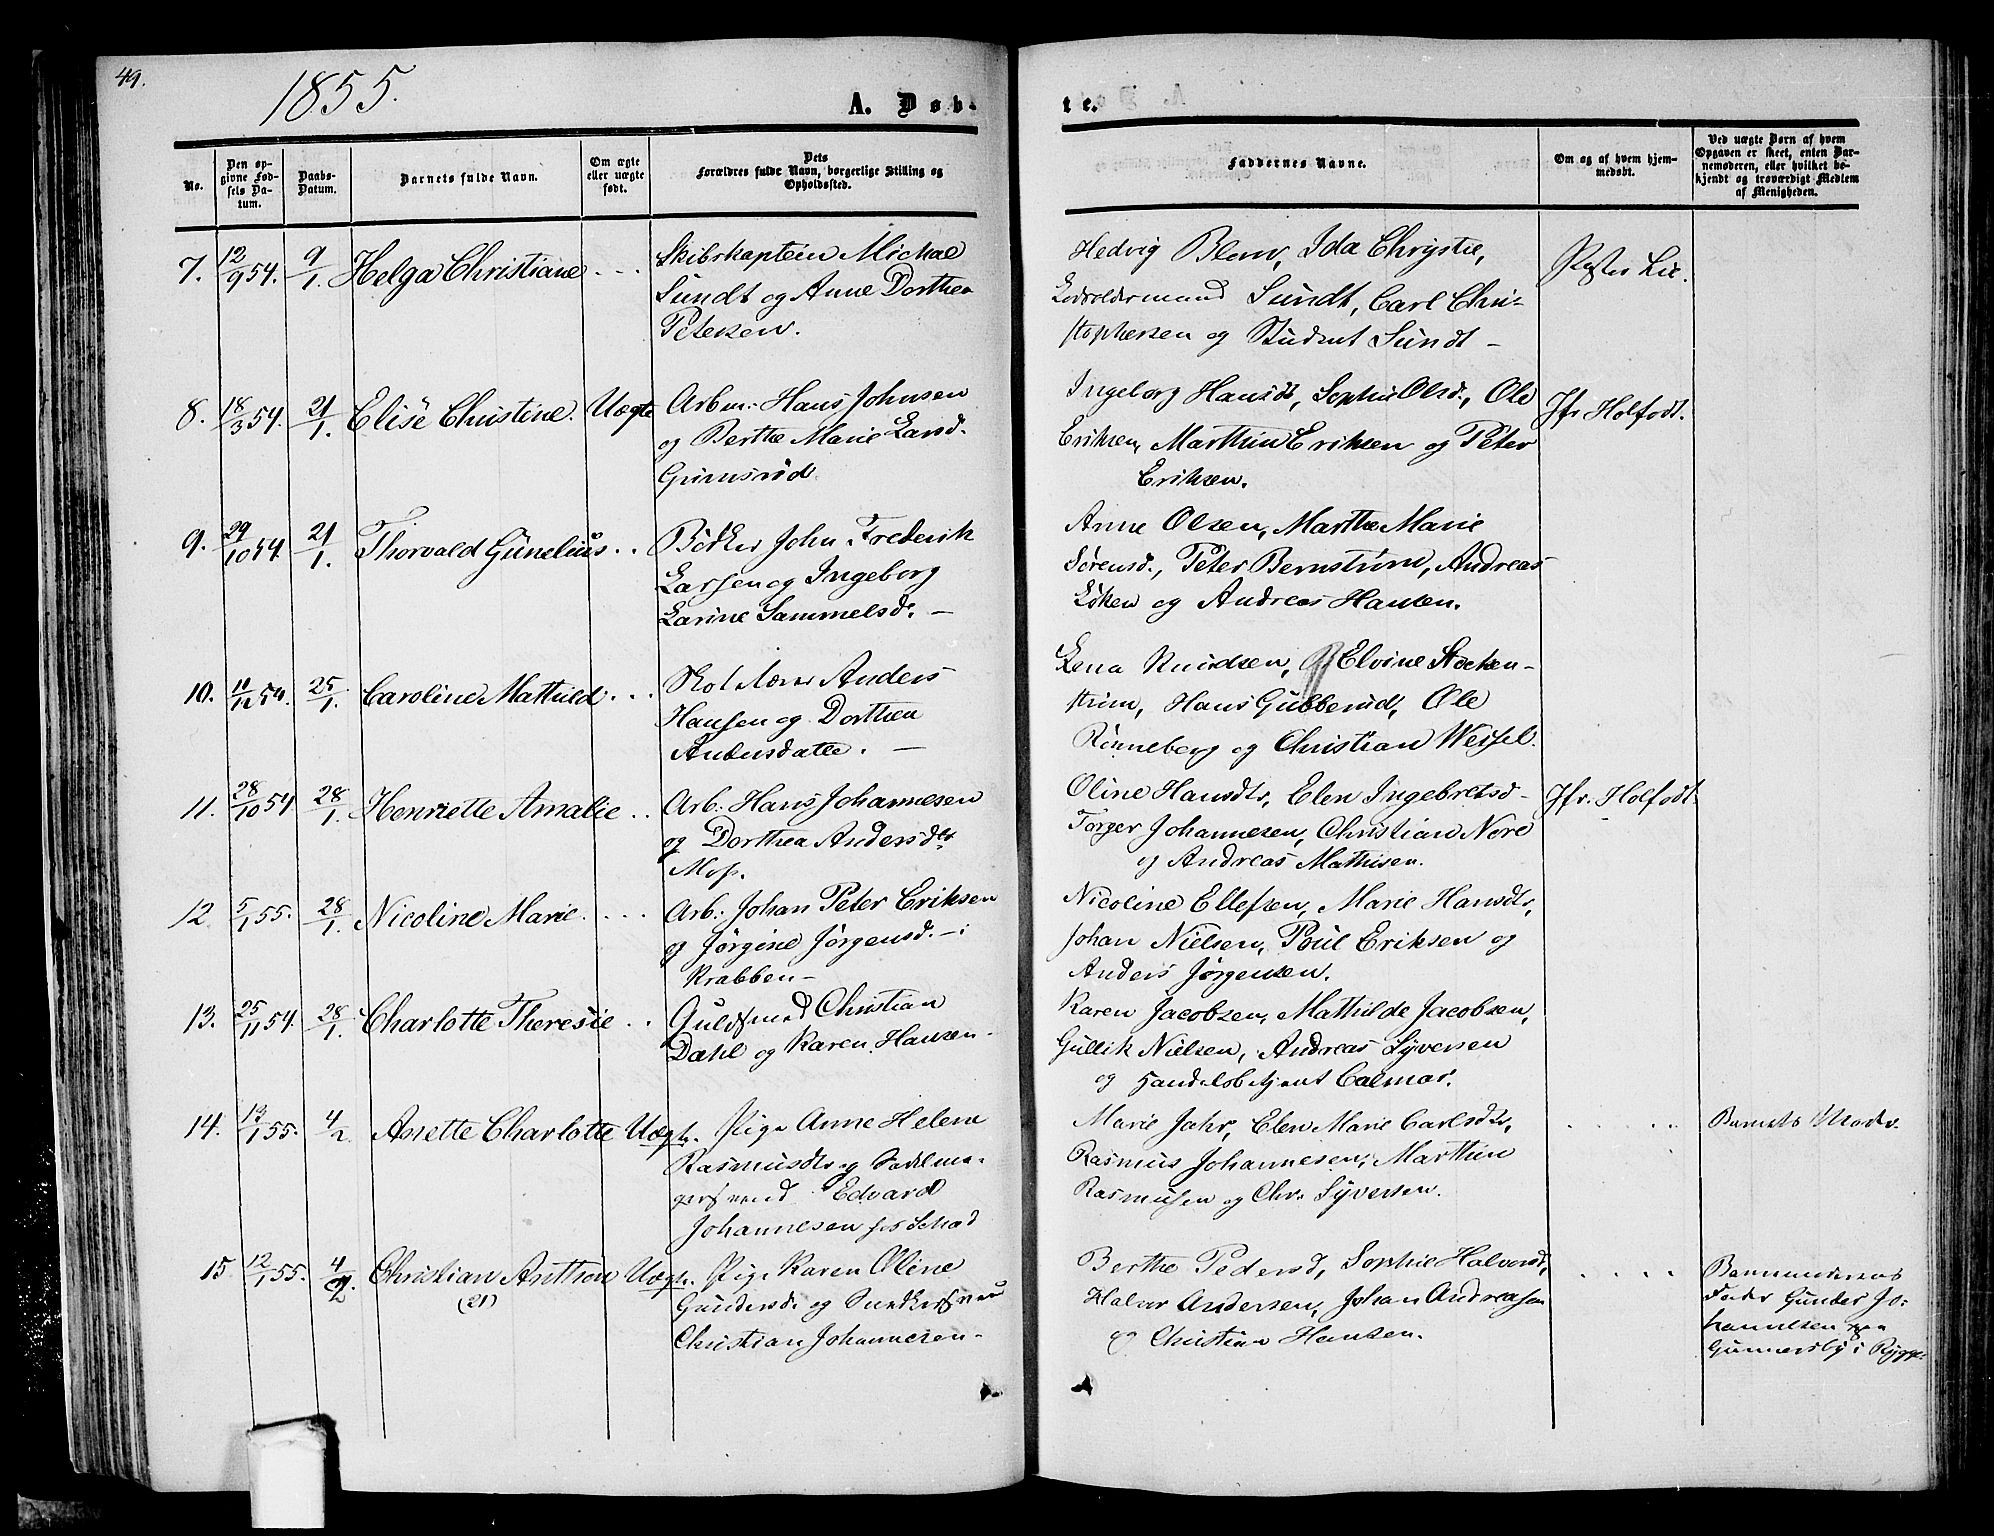 49.
1855.
A. Døb-
te.
No.
Den op-
givne Fød-
sels Da-
tum.
Daabs-
Datum.
Barnets fulde Navn.
Om ægte
eller uægte
født.
Dets
Forældres fulde Navn, borgerlige Stilling og
Opholdssted.
Faddernes Navne.
Om og af hvem hjem-
medøbt.
Ved uægte Børn af hvem
Opgaven er skeet, enten Bar-
nemoderen, eller hvilket be-
kjendt og troværdigt Medlem
af Menigheden.
7. 12/9 54. 9/1. Helga Christiane
Skibskaptein Michal
Sundt og Anne Dorthea
Petersen.
Hedvig Blom, Ida Chrystie,
Sundt, Carl Chri-
stophersen og Student Sundt -
Lie.
8. 18/3 54. 21/1. Elise Christine. Uægte
Arbm: Hans Johnsen
og Berthe Marie Land.
Grimsrød
Ingeborg Hansdt, Sophie Olsd., Ole
Eriksen, Marthin Eriksen og Peter
Eriksen.
Jfr Holfodt.
9. 29/10 54. 21/1. Thorvald Gunelius
Bødker John Frederik
Larsen og Ingeborg
Larine Sammelsd. -
Anne Olsen, Marthe Marie
Sørensd., Peter Bernstrøm, Andreas
Løken og Andreas Hansen.
10. 11/12 54. 25/1. Caroline Mathild
Anders
Hansen og Dorthea
Andersdatter. -
Lena Knudsen, Elvine Stocken-
strøm, Hans Gubberud, Ole
Rønneberg og Christian Weisel.
11. 28/10 54 28/1. Henriette Amalie
Arb: Hans Johannesen
og Dorthea Andersdtr
Moss.
Oline Hansdtr, Elen Ingebretsd -
Torger Johannesen, Christian Nore
og Andreas Mathisen.
Jfr. Holfodt.
12 5/1 55. 28/1. Nicoline Marie
Arb: Johan Peter Eriksen
og Jørgine Jørgensd. - i
Krabben -
Nicoline Ellefsen, Marie Hansdtr,
Johan Nielsen, Poul Eriksen og
Anders Jørgensen.
13. 25/11 54. 28/1. Charlotte Theresie
Guldsmed Christian
Dahl og Karen Hansen -
Karen Jacobsen, Mathilde Jacobsen,
Gullik Nielsen, Andreas Syversen
og Handelsbetjent Calmar.
14. 13/1 55. 4/2 Anette Charlotte Uægte.
Pige Anne Helene
Rasmusdtr og Sadelma-
gersvend Edvard
Johannesen
Marie Jahr, Elen Marie Carlsdtr,
Rasmus Johannesen, Marthin
Rasmusen og Chr. Syversen.
Barnets Moder.
15 12/1 55. 4/2 Christian Anthon Uægte.
(21)
Pige Karen Oline
Gundersd. og
Christian Johannesen -
Berthe Pedersd, Sophie Halvorsd,
Halvor Andersen, Johan Andreasen
og Christian Hansen.
Barnemoderens
Fader Gunder Jo-
hannesen paa
Gunnersby i Rygge.